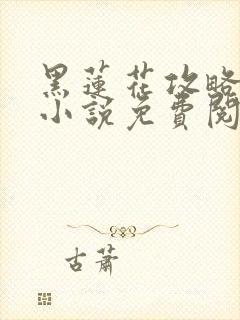 黑蓮花攻略
小說免費閱
古蕭